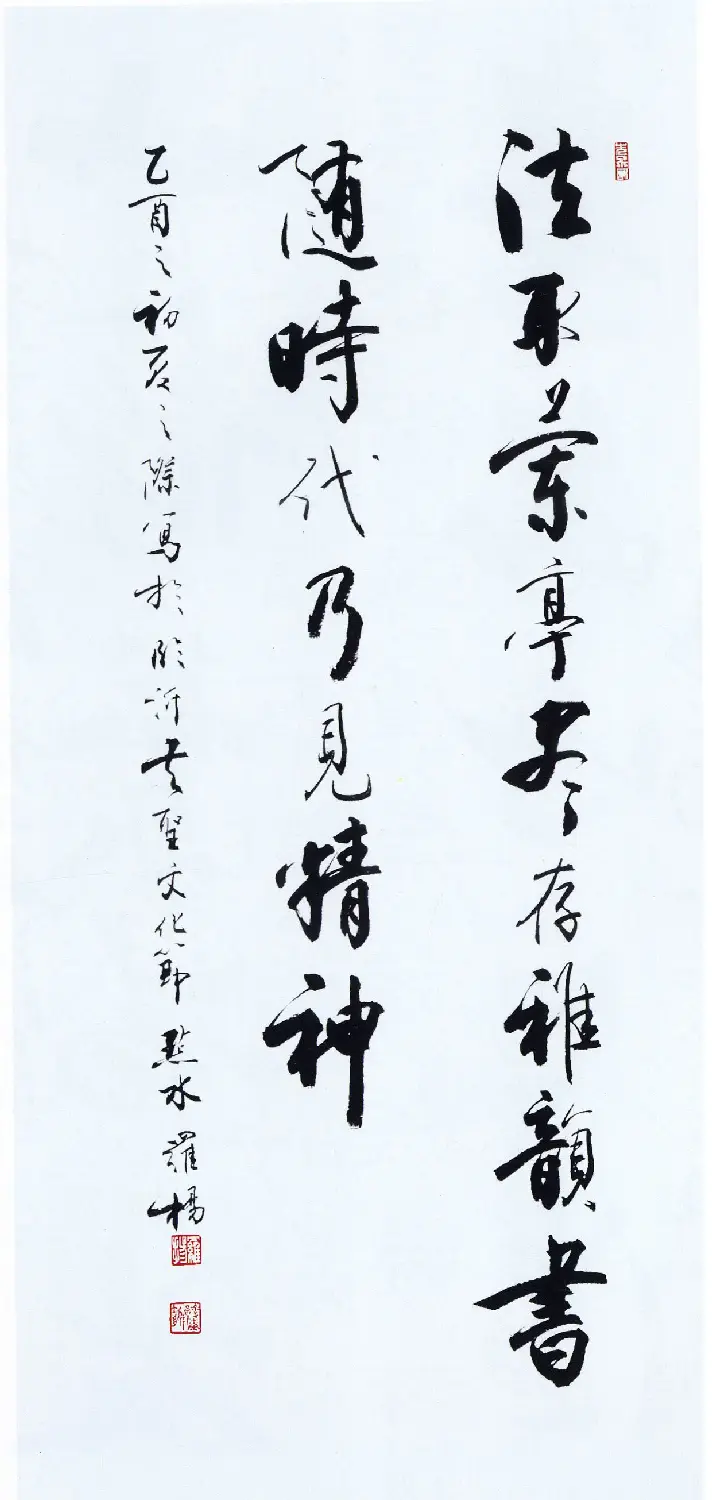 法取蘭亭尽存雅韻書
隨時代乃見精神
乙酉之初夏之際寫於臨沂書聖文化節 點水 羅楊